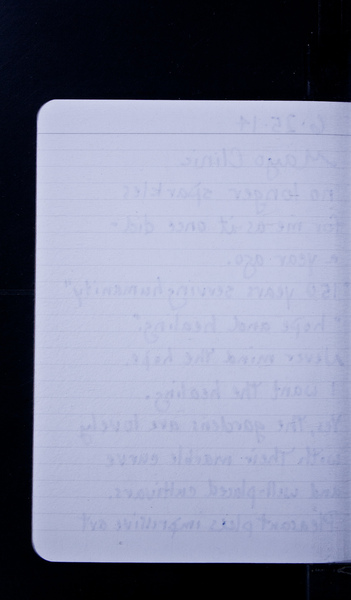 6.25.14
Mayo Clinic
no longer sparkles
for me as it once did -
a year ago.
"150 years serving humanity"
"hope and healing."
Never mind the hope,
I want the healing.
Yes, the gardens are lovely
with their marble curve
and well-placed cultivars.
Pleasant plein impressive art